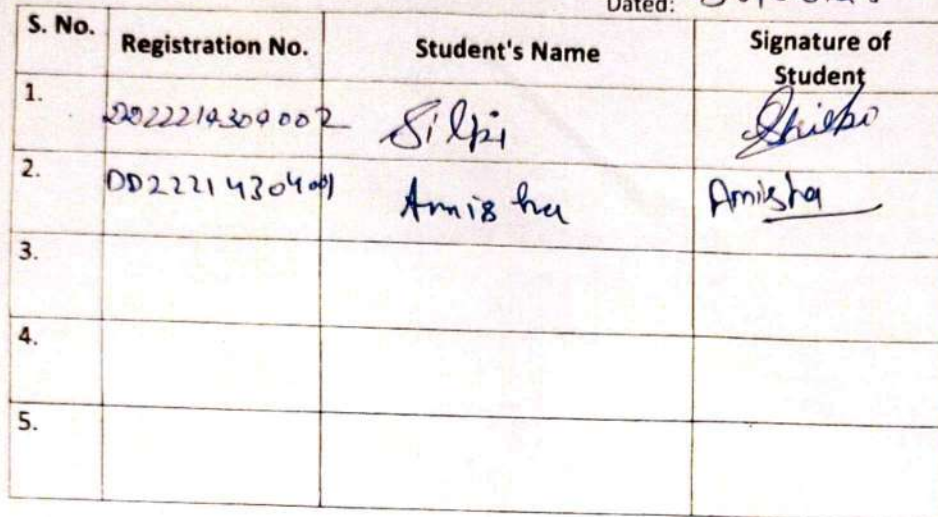 Dated:
S. No. Registration No. Student's Name Signature of Student
1. DD22214304002 Silpi Shilpi
2. DD22214304001 Amisha Amisha
3.
4.
5.